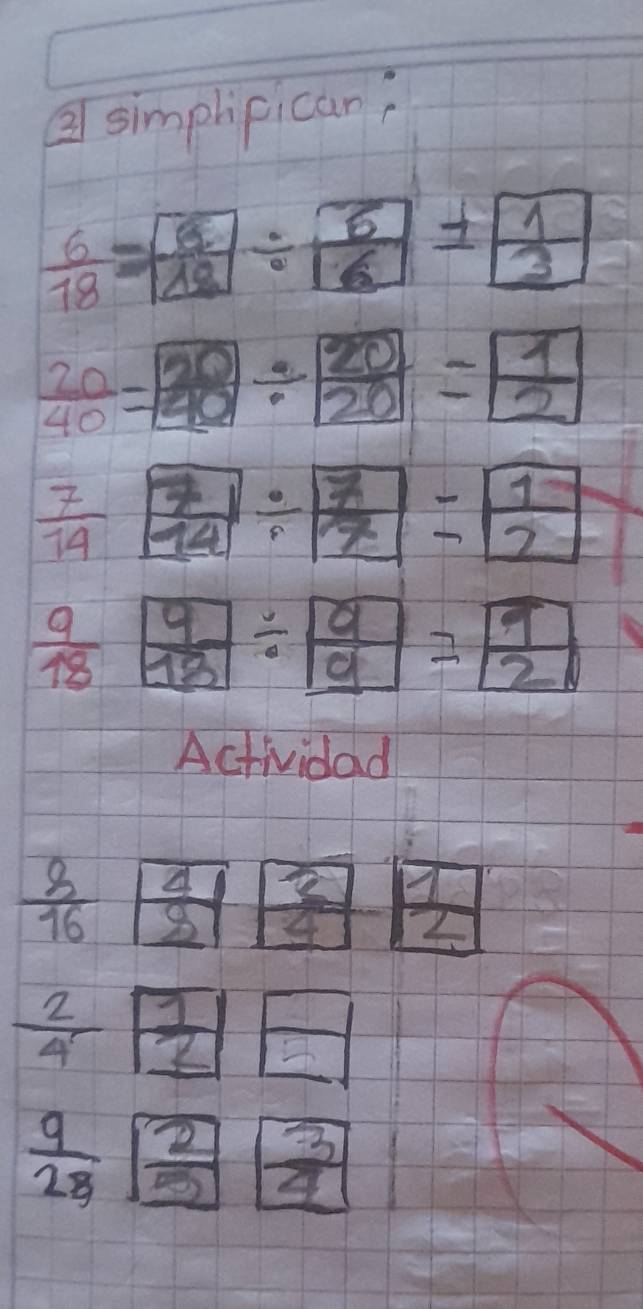 3 simplifican:
6/18 = 6/18 ÷ 6/6 = 1/3
20/40 = 20/40 ÷ 20/20 = 1/2
7/14 7/14 ÷ 7/7 = 1/2
9/18 9/18 ÷ 9/9 = 1/2
Actividad
8/16 4/8 2/4 1/2
2/4 1/2
9/28 3/4